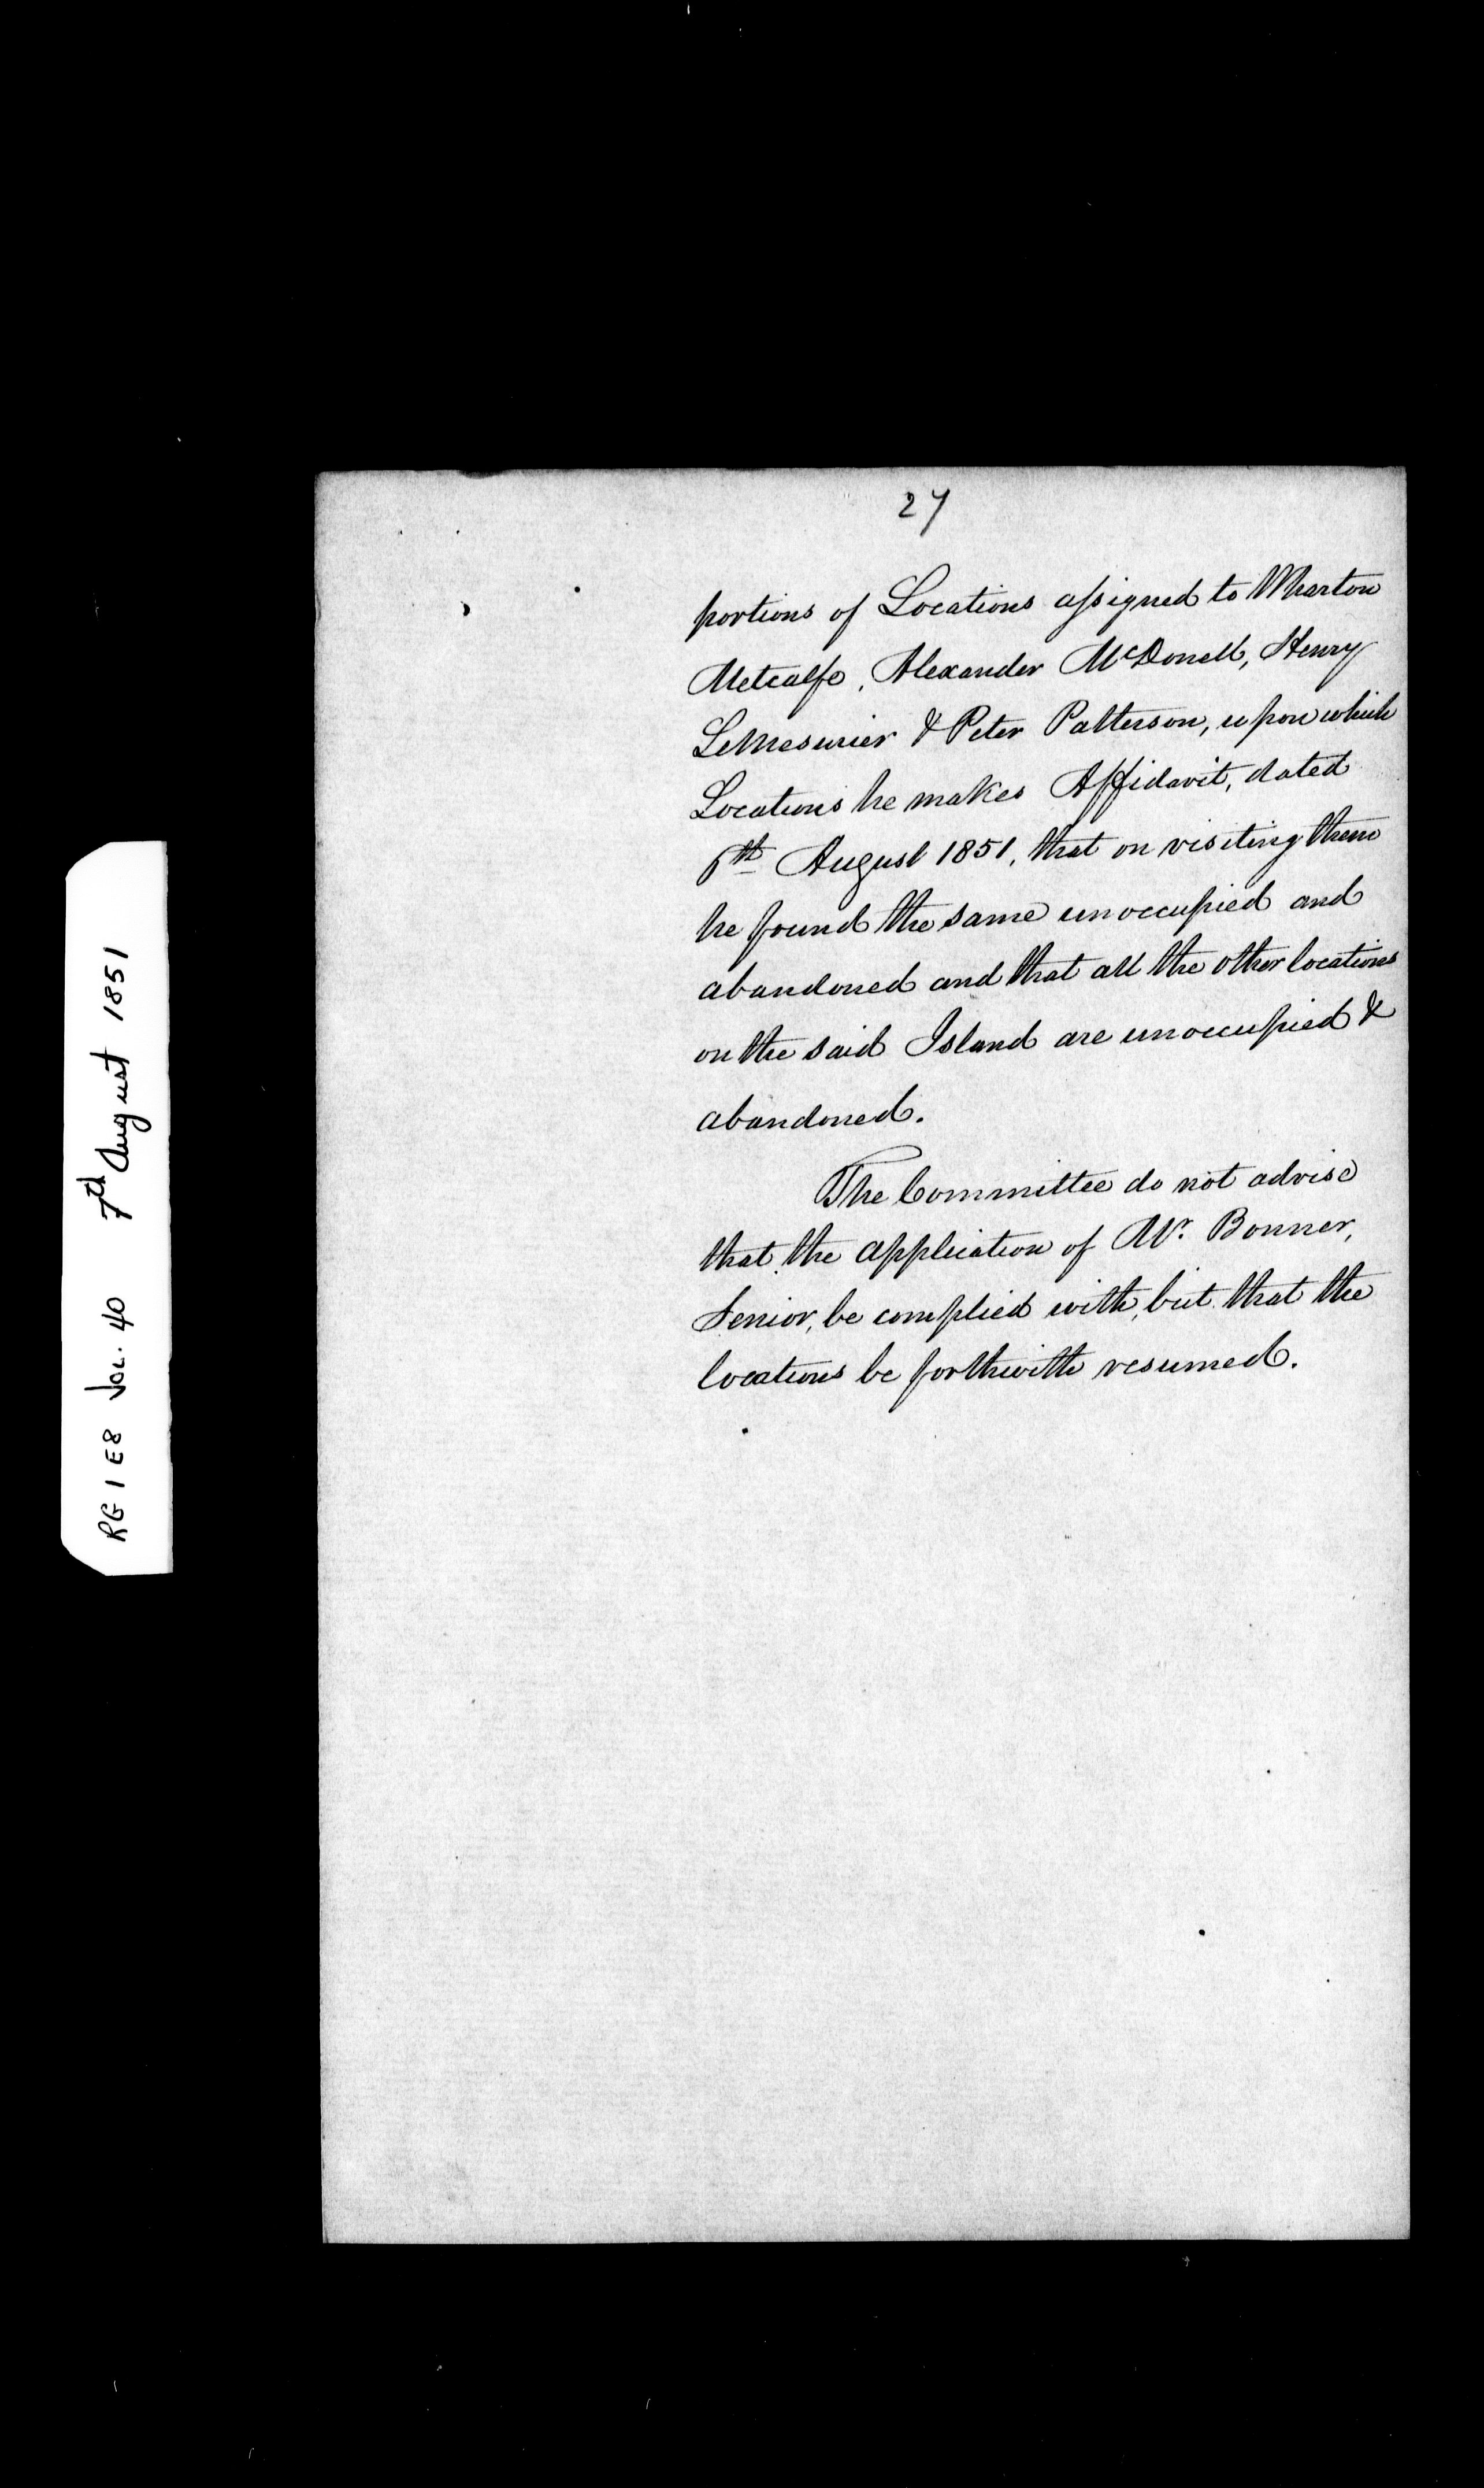 27
portions of Locations assigned to Wharton
Metcalfe, Alexander McDonell, Henry
LeMesurier & Peter Patterson, upon which
Locations he makes Affidavit, dated
6th August 1851, that on visiting them
he found the same unoccupied and
abandoned and that all the other locations
on the said Island are unoccupied &
abandoned.
The Committee do not advise
that the application of Mr. Bonner,
Senior, be complied with, but that the
locations be forthwith resumed.
RG 1 E8 Vol. 40 7th August 1851